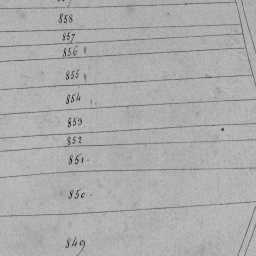 858
857
856
855
854
853
852
851
850
849